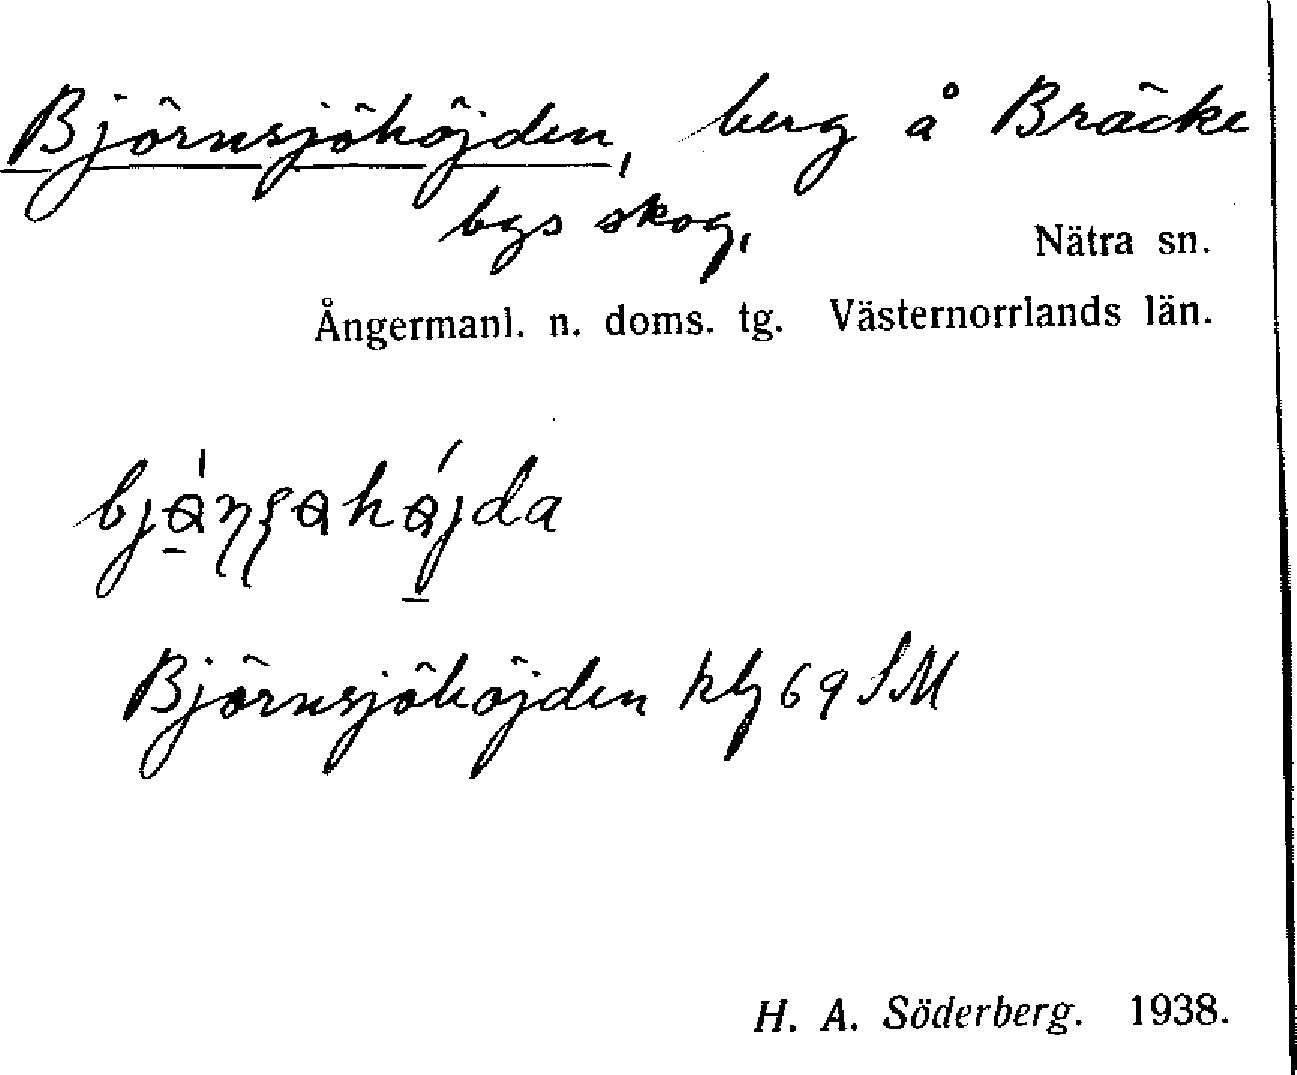 Björnsjöhöjden, berg å Bräcke
bys skog,
Nätra sn.
Ångermanl. n. doms. tg. Västernorrlands län.
Björnsjöhöjden kbl 69 SM
H. A. Söderberg. 1938.